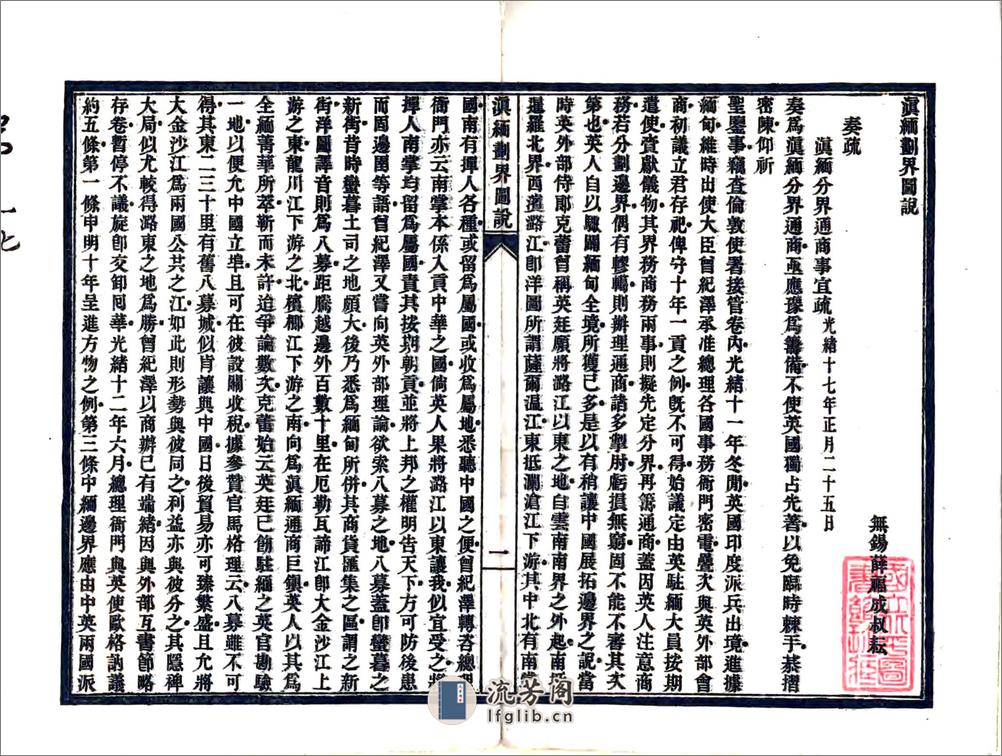 滇緬劃界圖說
無錫薛福成叔耘
奏疏
滇緬分界通商事宜疏光緒十七年正月二十五日
奏爲滇緬分界通商亟應豫爲籌備不使英國獨占先著以免臨時棘手恭摺
密陳仰祈
聖鑒事竊查倫敦使署接管卷內光緒十一年冬聞英國印度派兵出境進據
緬甸維時出使大臣曾紀澤承准總理各國事務衙門密電曡次與英外部會
商初議立君存祀俾守十年一貢之例旣不可得始議定由英駐緬大員按期
遣使齎獻儀物其界務商務兩事則擬先定分界再籌通商蓋因英人注意商
務若分劃邊界偶有轇轕則辦理通商諸多掣肘虧損無窮固不能不審其次
第也英人自以驟闢緬甸全境所獲已多是以有稍讓中國展拓邊界之說當
時英外部侍郎克蕾曾稱英廷願將潞江以東之地自雲南南界之外起南抵
暹羅北界西濱潞江卽洋圖所謂薩爾溫江東抵瀾滄江下游其中北有南掌
滇緬劃界圖說
一
國南有撣人各種或留爲屬國或收爲屬地悉聽中國之便曾紀澤轉咨總理
衙門亦云南掌本係入貢中華之國倘英人果將潞江以東讓我似宜受之將
撣人南掌均留爲屬國責其按期朝貢並將上邦之權明告天下方可防後患
而固邊圉等語曾紀澤又嘗向英外部理論欲索八募之地八募蓋卽蠻暮之
新街昔時蠻暮土司之地頗大後乃悉爲緬甸所併其商貨匯集之區謂之新
街洋圖譯音則爲八募距騰越邊外百數十里在厄勒瓦諦江卽大金沙江上
游之東龍川江下游之北檳榔江下游之南向爲滇緬通商巨鎭英人以其爲
全緬菁華所萃靳而未許迨爭論數次克蕾始云英廷已飭駐緬之英官勘驗
一地以便允中國立埠且可在彼設關收稅據參贊官馬格理云八募雖不可
得其東二三十里有舊八募城似肯讓與中國日後貿易亦可臻繁盛且允將
大金沙江爲兩國公共之江如此則形勢與彼同之利益亦與彼分之其隱裨
大局似尤較得潞東之地爲勝曾紀澤以商辦已有端緒因與外部互書節略
存卷暫停不議旋卽交卸囘華光緒十二年六月總理衙門與英使歐格訥議
約五條第一條申明十年呈進方物之例第三條中緬邊界應由中英兩國派
流芳阁
lfglib.cn